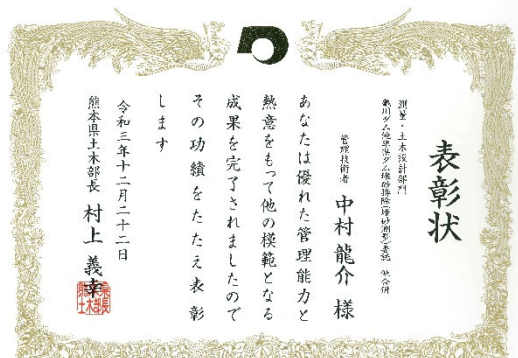 表彰状
測量・土木設計部門
氷川ダム他単県ダム堆砂排除(堆砂測量)委託 他合併
管理技術者 中村 龍介 様
あなたは優れた管理能力と
熱意をもって他の模範となる
成果を完了されましたので
その功績をたたえ表彰
します
令和三年十二月二十二日
熊本県土木部長 村上 義幸